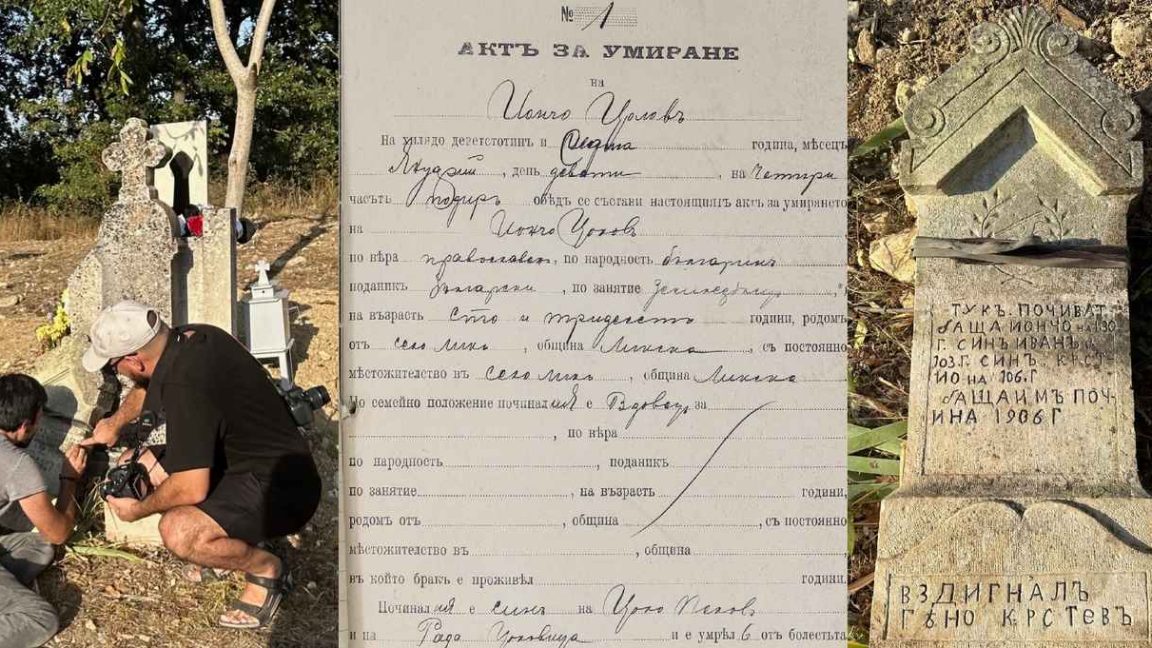 № 1
АКТЪ ЗА УМИРАНЕ
на
Йончо Цоловъ
На хилядо деветстотин и Седма година, мѣсецъ
Януарий, день девети, на Четири
часътъ подиръ обѣдъ се състави настоящиятъ актъ за умирането
на Йончо Цоловъ
по вѣра православенъ, по народность българинъ
поданикъ български, по занятие Земледѣлецъ,
на възрасть Сто и тридесеть години, родомъ
отъ село, община, съ постоянно
мѣстожителство въ село, община
По семейно положение починалия е Вдовецъ за
, по вѣра
по народность, поданикъ
по занятие, на възрасть години,
родомъ отъ, община, съ постоянно
мѣстожителство въ, община
въ който бракъ е проживѣл години.
Починалия е синъ на Цоло
и на Рада Цоловица и е умрѣл отъ болестьта
ТУКЪ ПОЧИВАТ
БАЩА ЙОНЧО НА 130
Г. СИНЪ ИВАНЪ
103 Г. СИНЪ КРСТ
ЙО НА 106. Г
БАЩА ИМЪ ПОЧ-
ИНА 1906 Г
ВЗДИГНАЛЪ
ГѢНО КРСТЕВЪ